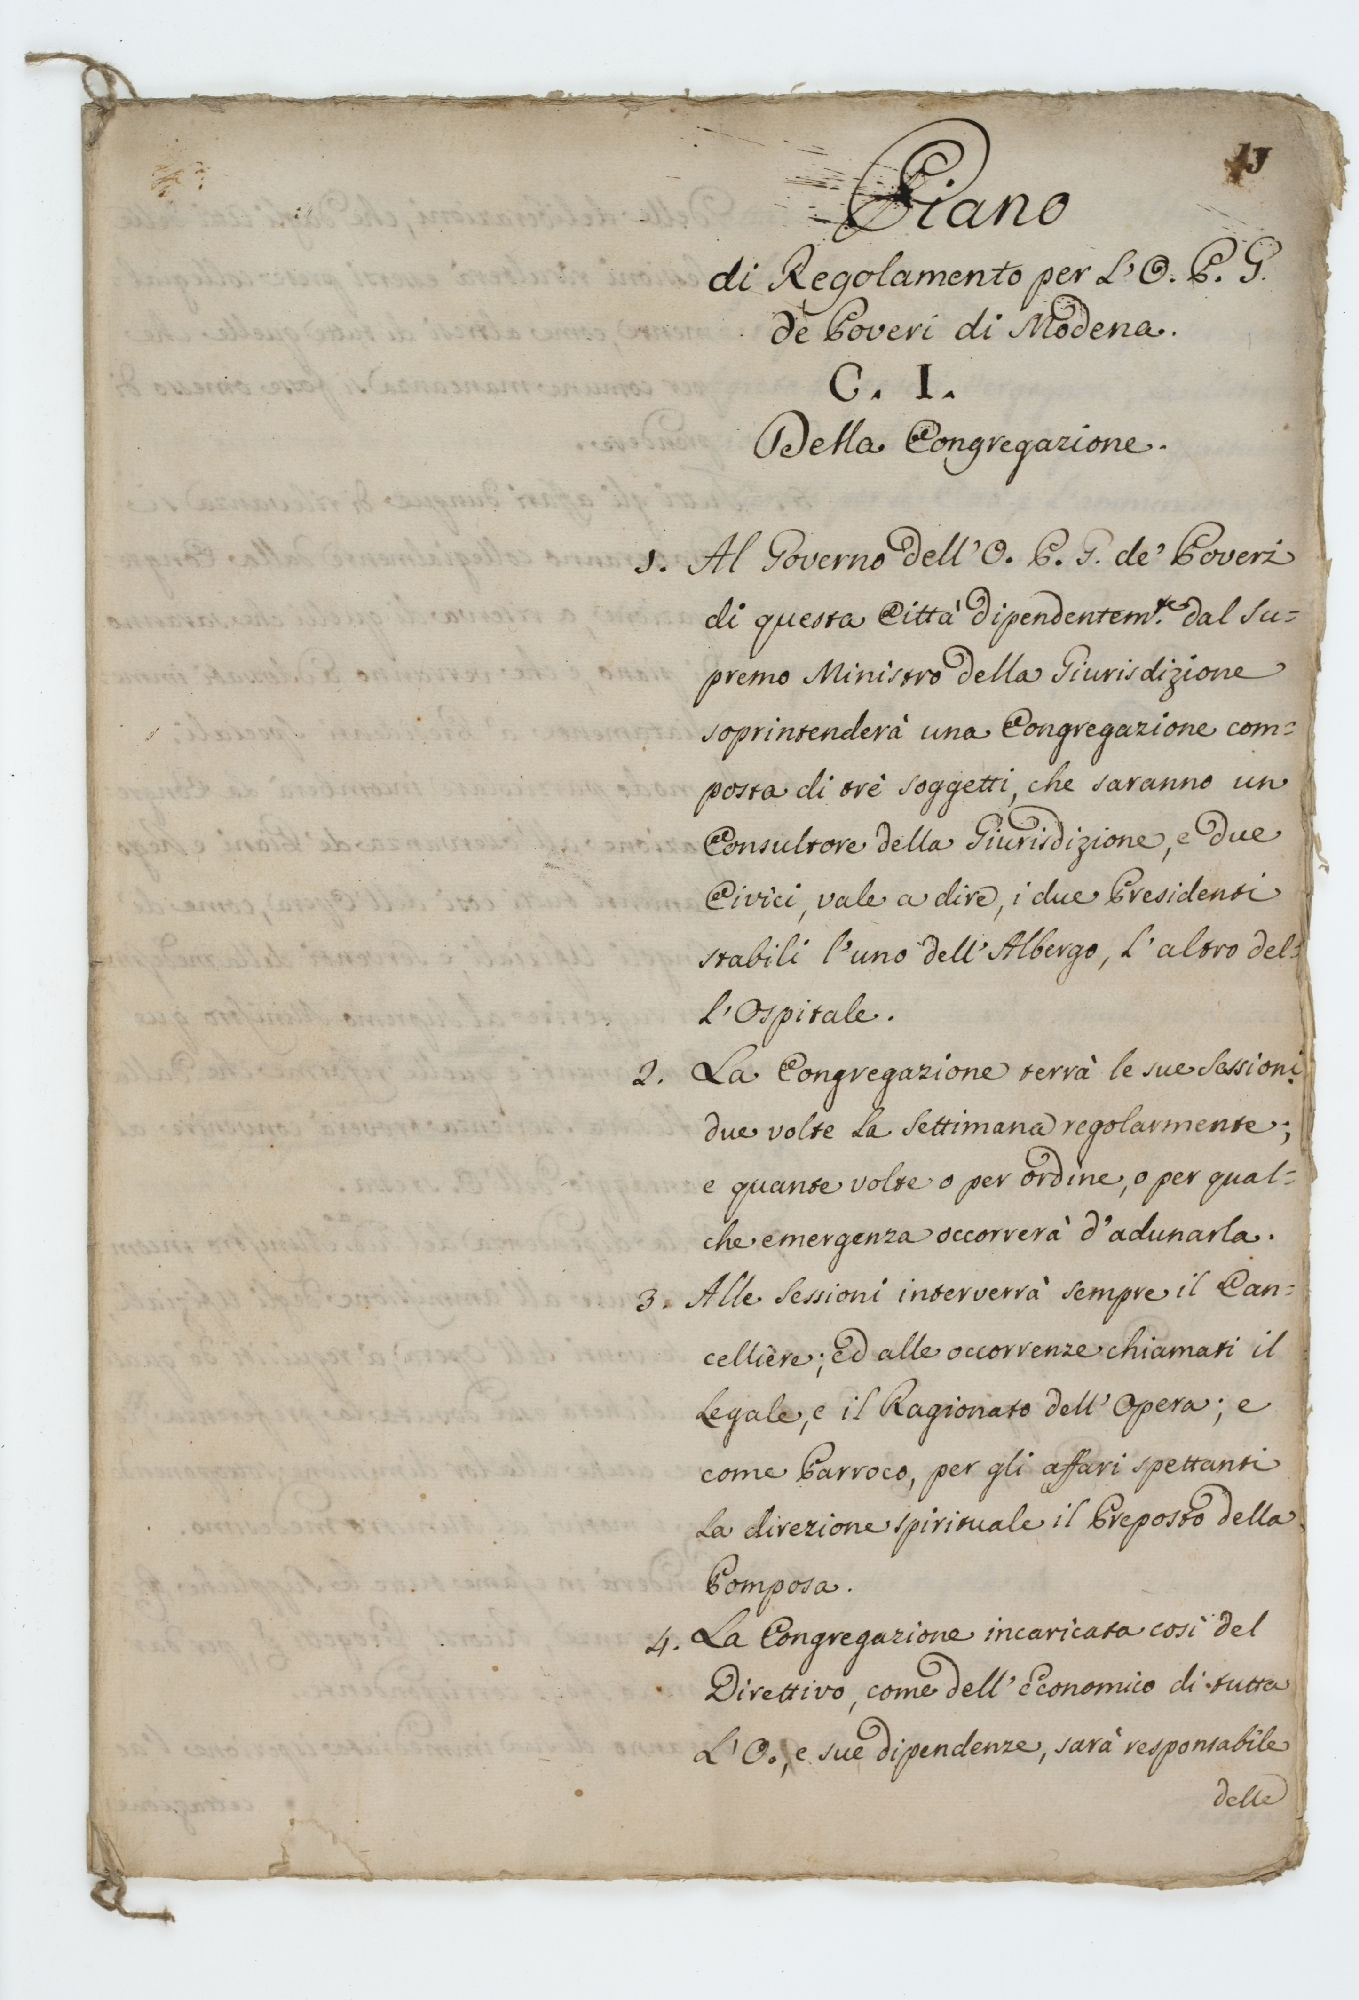 Piano
di Regolamento per L'O. P. G.
de Poveri di Modena.
C. I.
Della Congregazione.
1. Al Governo dell'O. P. G. de' Poveri
di questa Città dipendentem.te dal Su=
premo Ministro della Giurisdizione
soprintenderà una Congregazione com=
posta di trè soggetti, che saranno un
Consultore della Giurisdizione, e due
Civici, vale a dire, i due Presidenti
stabili l'uno dell'Albergo, L'altro del=
L'Ospitale.
2. La Congregazione terrà le sue Sessioni
due volte La Settimana regolarmente;
e quante volte o per ordine, o per qual=
che emergenza occorrerà d'adunarla.
3. Alle Sessioni interverrà sempre il Can=
celliere; ed alle occorrenze chiamati il
Legale, e il Ragionato dell'Opera; e
come Parroco, per gli affari spettanti
La direzione spirituale il Preposto della
Pomposa.
4. La Congregazione incaricata così del
Direttivo, come dell'economico di tutta
L'O., e sue dipendenze, sarà responsabile
delle